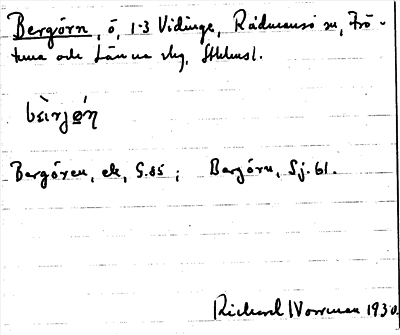 Bergörn, ö, 1-3 Vidinge, Rådmansö sn, Frö-
tuna och Länna skg, Sthlmsl.
Bergören, ek, S.85; Bergörn, Sj. 61.
Richard Norrman 1930.